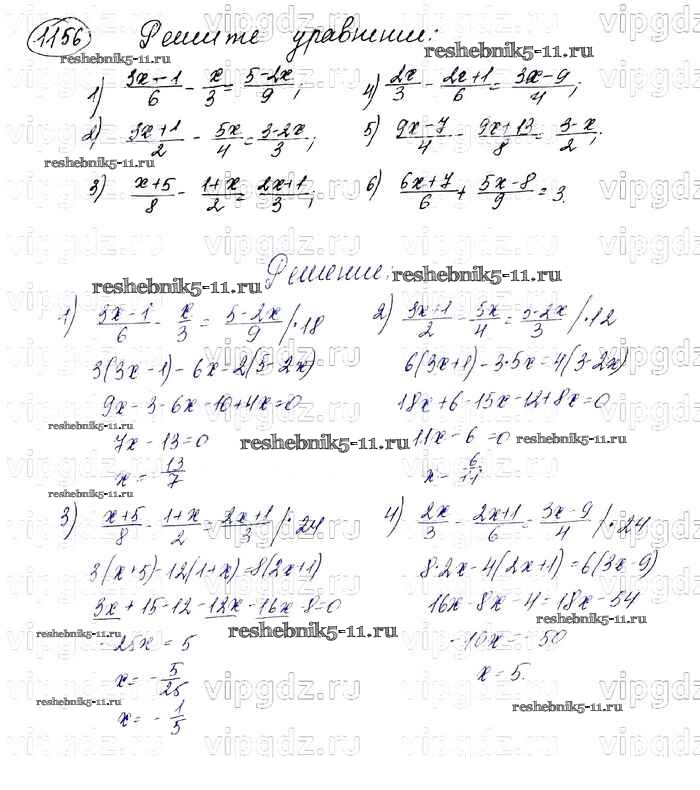 1156 Решите уравнения:
1) (3x-1)/6 - x/3 = (5-2x)/9; 4) 2x/3 - (2x+1)/6 = (3x-9)/4;
2) (3x+1)/2 - 5x/4 = (3-2x)/3; 5) (9x-7)/4 - (9x+13)/8 = (3-x)/2;
3) (x+5)/8 - (1+x)/2 = (2x+1)/3; 6) (6x+7)/6 + (5x-8)/9 = 3.
Решение:
1) (3x-1)/6 - x/3 = (5-2x)/9 /·18
3(3x-1)-6x=2(5-2x)
9x-3-6x-10+4x=0
7x-13=0
x = 13/7
2) (3x+1)/2 - 5x/4 = (3-2x)/3 /·12
6(3x+1)-3·5x=4(3-2x)
18x+6-15x-12+8x=0
11x-6=0
x = 6/11
3) (x+5)/8 - (1+x)/2 = (2x+1)/3 /·24
3(x+5)-12(1+x)=8(2x+1)
3x+15-12-12x-16x-8=0
-25x = 5
x = -5/25
x = -1/5
4) 2x/3 - (2x+1)/6 = (3x-9)/4 /·24
8·2x-4(2x+1)=6(3x-9)
16x-8x-4=18x-54
-10x=-50
x=5.
reshebnik5-11.ru
vipgdz.ru